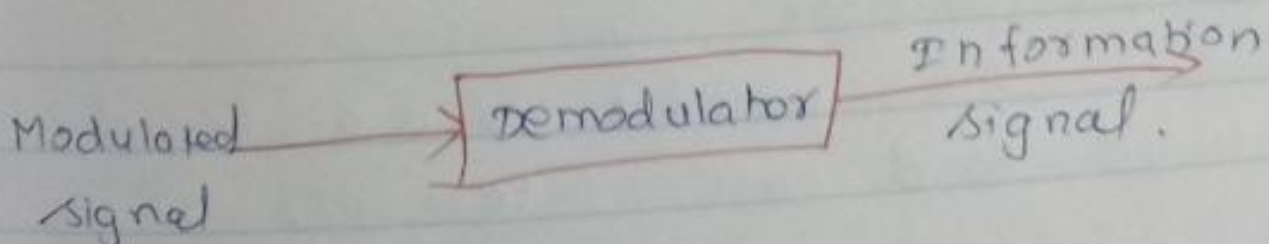 Modulated
signal
Demodulator
Information
signal.